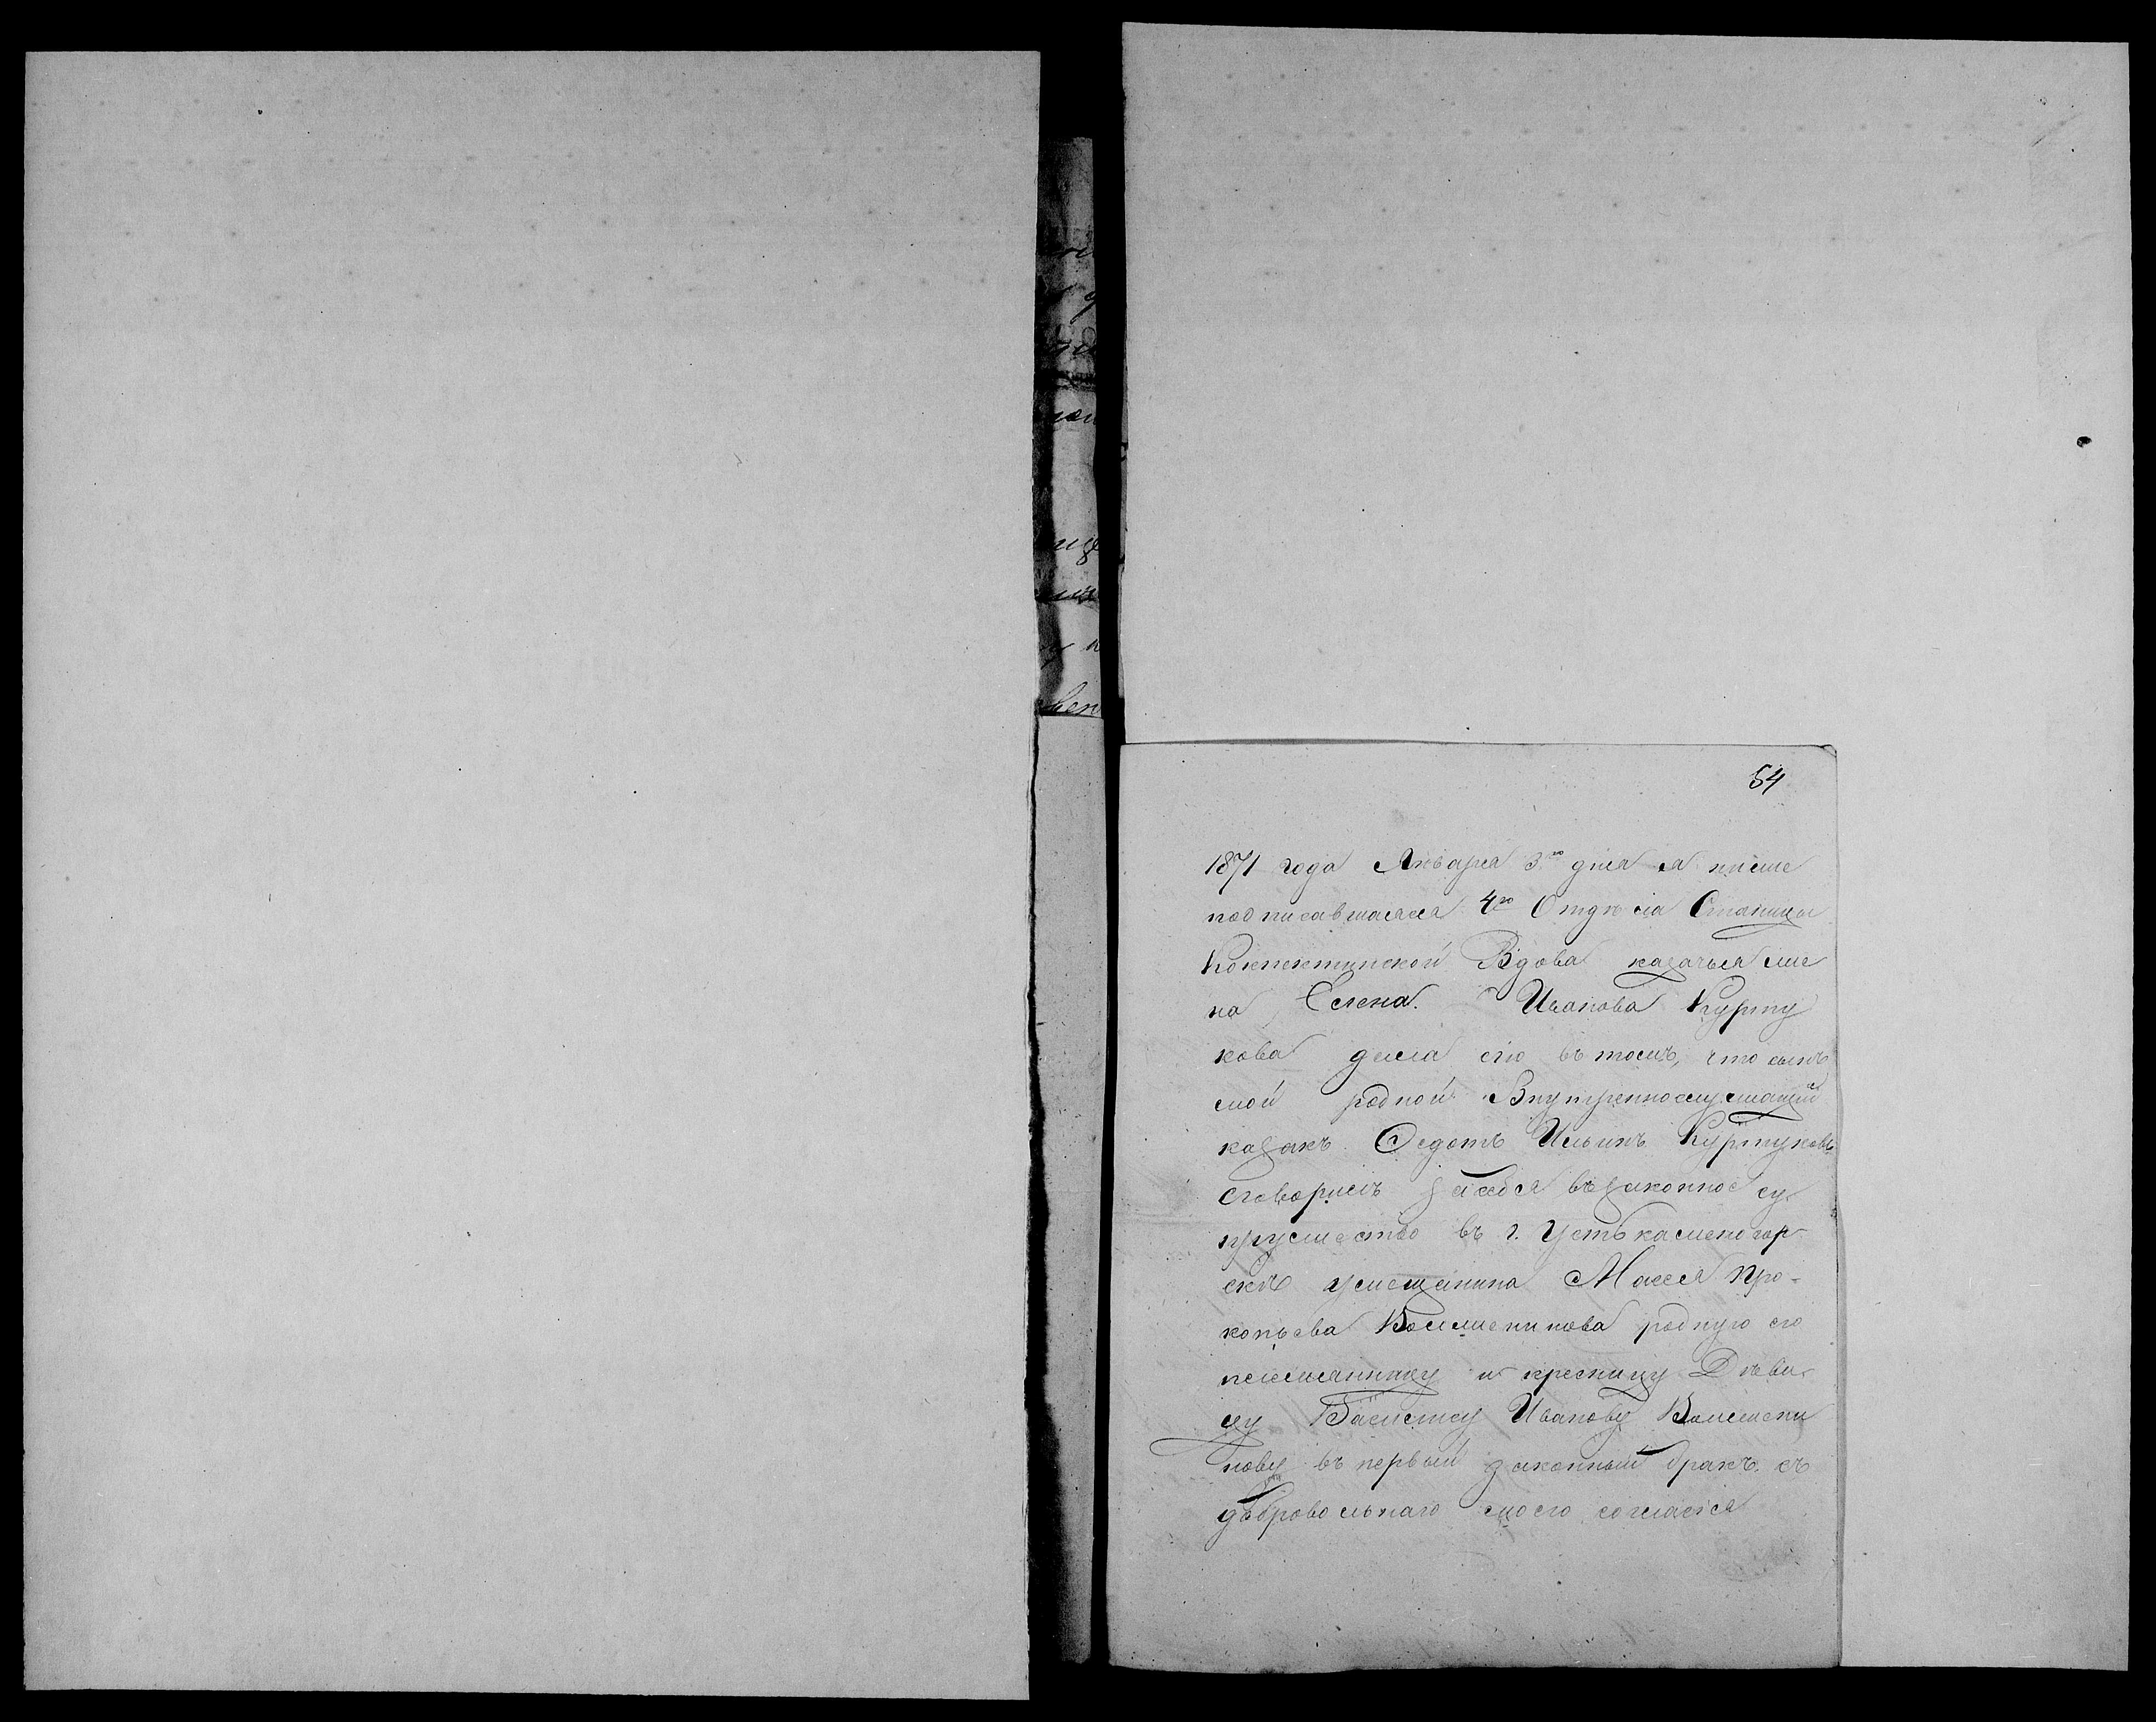 54
1871 года Января 3го дня я ниже
подписавшаяся 4го Отдѣла Станицы
Кокпектинской Вдова казачья же
на Елена Иванова Курту
кова дала сію въ томъ, что сынъ
мой родной Внутреннослужащій
казакъ Федотъ Ильинъ Куртуковъ
сговорилъ за себя въ законное су
пружество въ г. Устькаменогор
скѣ умещанина Про-
копьева родную его
племянницу и крестницу Дѣви
цу Иванову
нову въ первый законный бракъ съ
добровольнаго моего согласія